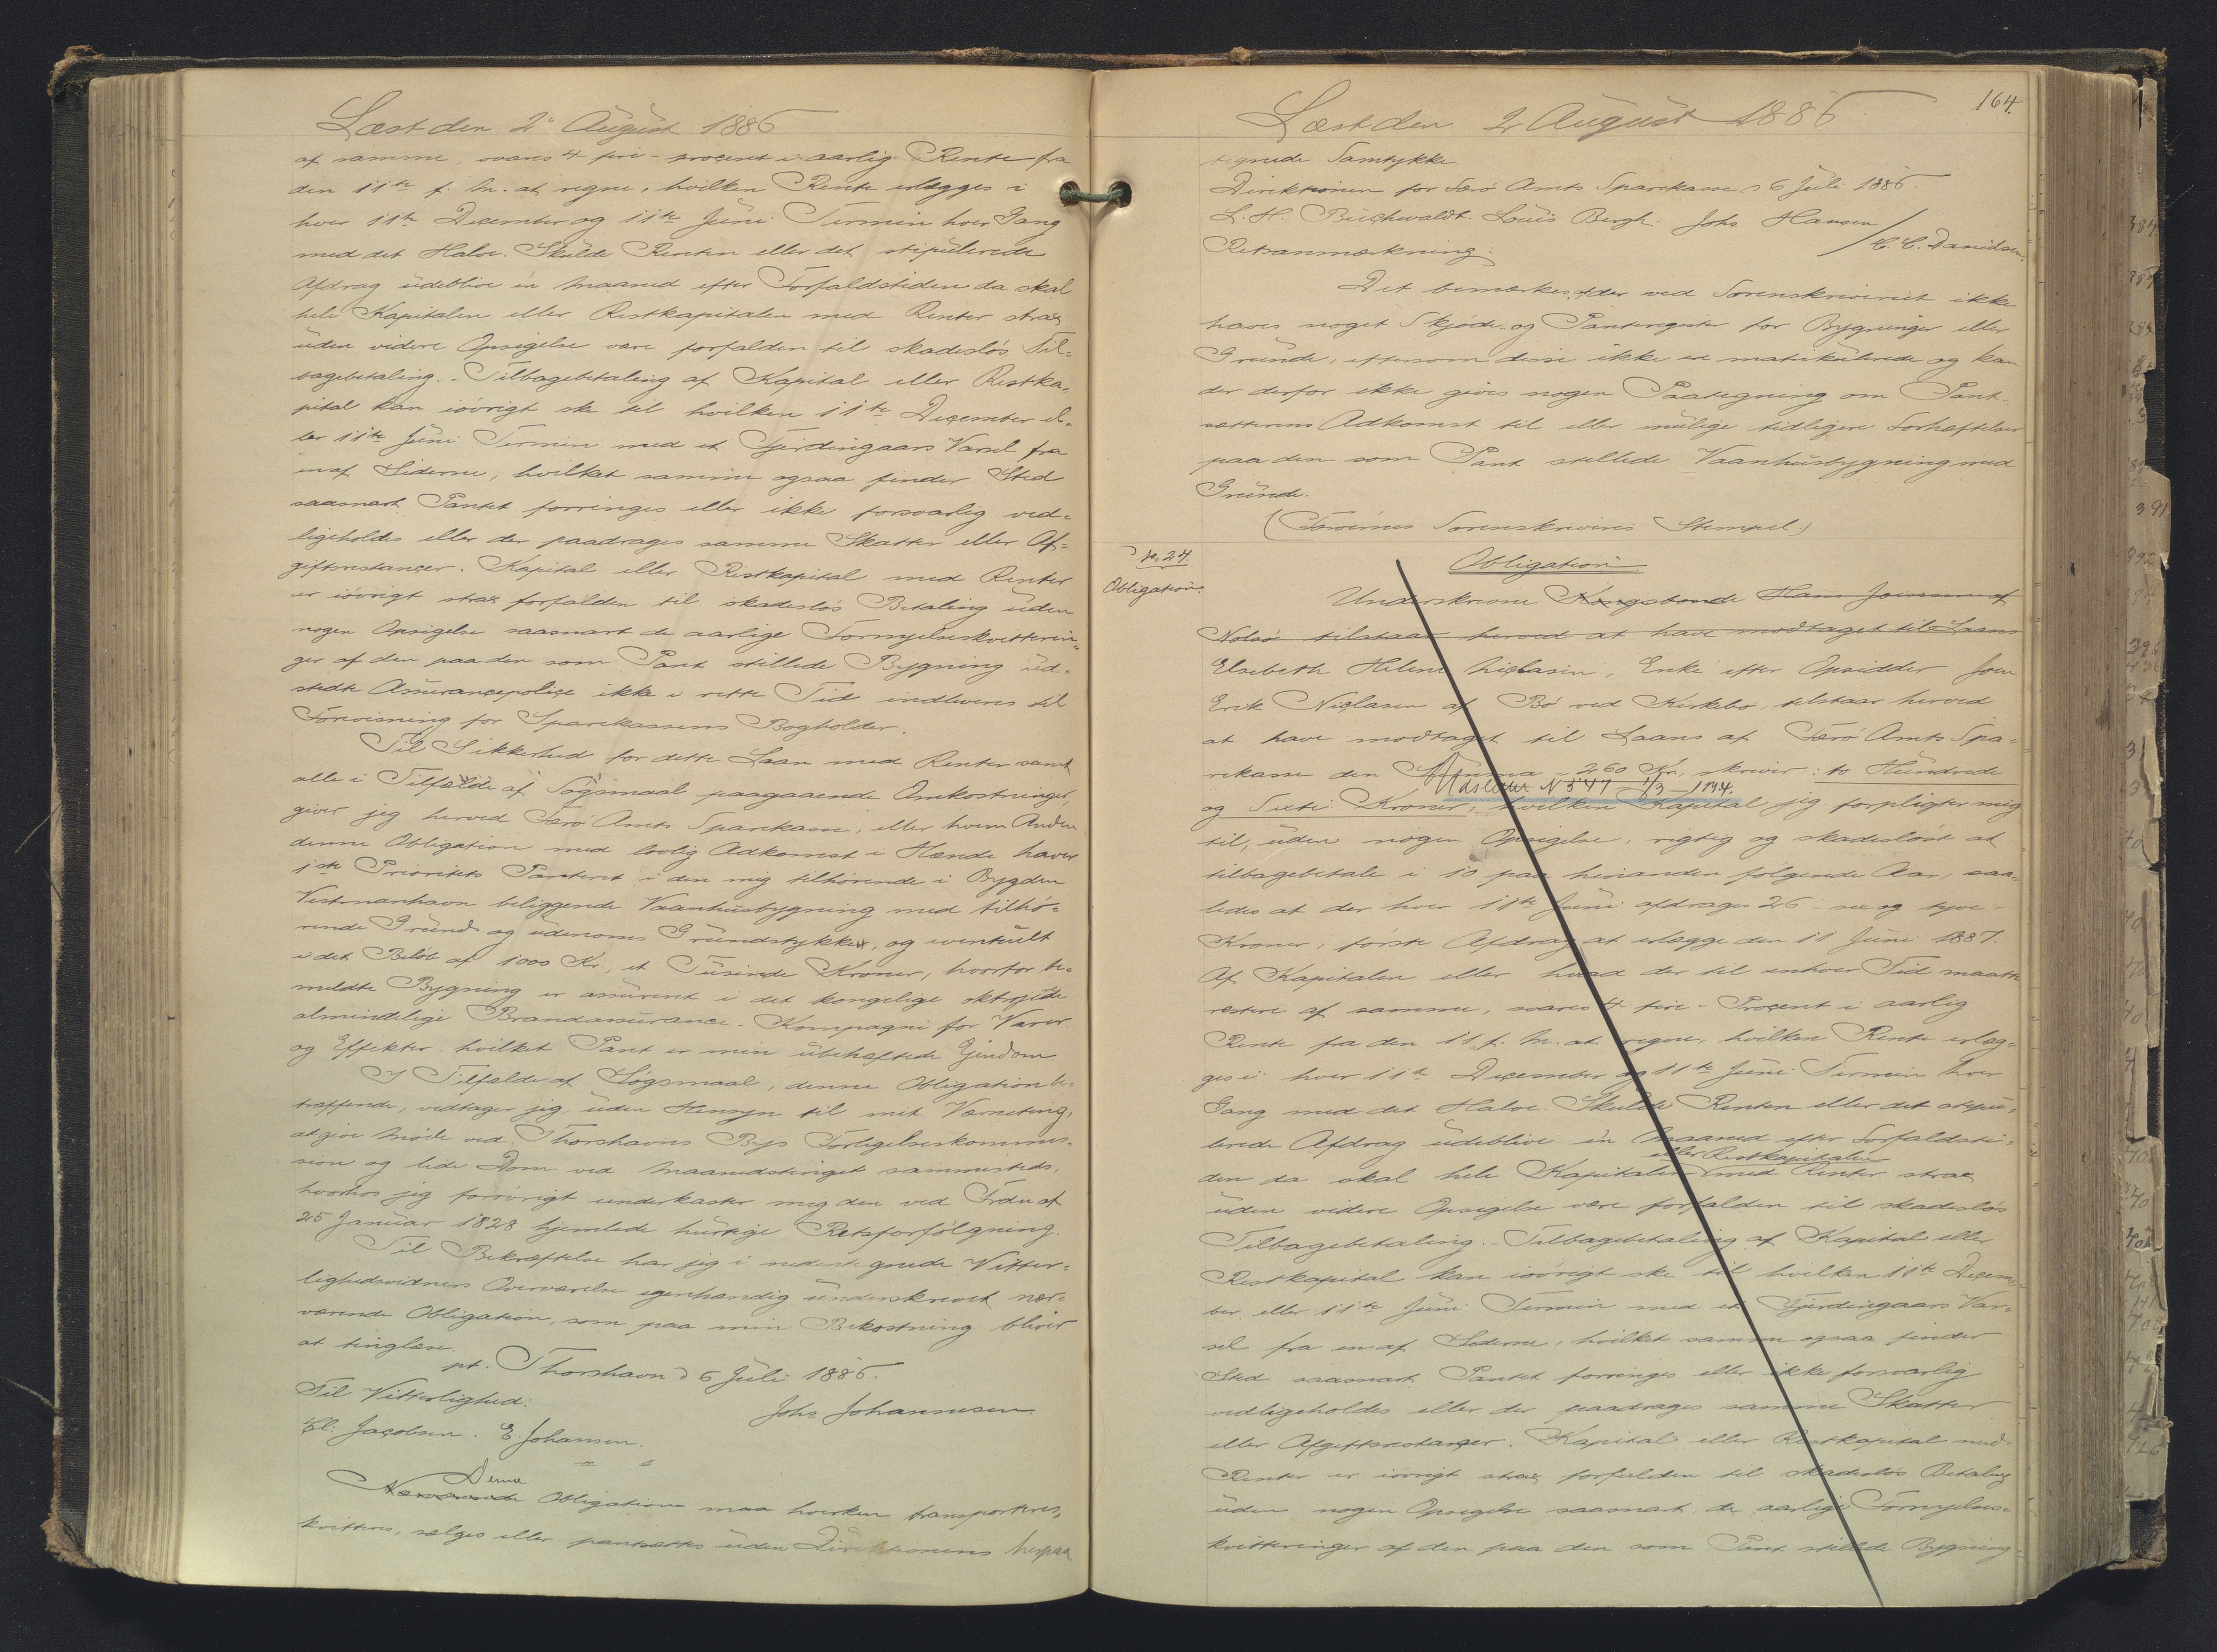 Læst den 2' August 1886
af samme, svares 4 fire - procent i aarlig Rente fra
den 11te f. M. at regne, hvilken Rente erlægges i
hver 11te December og 11te Juni Termin hver Gang
med det Halve. Skulde Renten eller det stipulerede
Afdrag udeblive en Maaned efter Forfaldstiden da skal
hele Kapitalen eller Restkapitalen med Renter strax
uden videre Opsigelse være forfalden til skadesløs Til=
bagebetaling. - Tilbagebetaling af Kapital eller Restka=
pital kan iøvrigt ske til hvilken 11te December el=
ler 11te Juni Termin med et Fjerdingaars Varsel fra
en af Siderne, hvilket samme ogsaa finder Sted
saasnart Pantet forringes eller ikke forsvarlig ved=
ligeholdes eller der paadrages samme Skatter eller Af=
giftsrestancer. Kapital eller Restkapital med Renter
er iøvrigt strax forfalden til skadesløs Betaling uden
nogen Opsigelse saasnart de aarlige Fornyelseskvitterin=
ger af den paa den som Pant stillede Bygning ud=
stedte Assurancepolice ikke i rette Tid indleveres til
Forevisning for Sparekassens Bogholder.
Til Sikkerhed for dette Laan med Renter samt
alle i Tilfælde af Søgsmaal paagaaende Omkostninger,
giver jeg herved Færø Amts Sparekasse, eller hvem Anden
denne Obligation med lovlig Adkomst i Hænde haver
1ste Prioritets Panteret i den mig tilhørende i Bygden
Vestmanhavn beliggende Vaanhusbygning med tilhø=
rende Grund og udenoms Grundstykker, og eventuelt
i det Beløb af 1000 Kr., et Tusinde Kroner, hvorfor be=
meldte Bygning er assureret i det kongelige oktrojede
almindelige Brandassurance-Kompagni for Varer
og Effekter, hvilket Pant er min ubehæftede Ejendom
I Tilfælde af Søgsmaal, denne Obligation be=
træffende, vedtager jeg, uden Hensyn til mit Værneting,
at give Møde ved Thorshavns Bys Forligelseskommis=
sion og lide Dom ved Maanedstinget sammesteds,
hvorhos jeg forøvrigt underkaster mig den ved Frdn af
25 Januar 1828 hjemlede hurtige Retsforfølgning.
Til Bekræftelse har jeg i nedentegnede Vitter=
lighedsvidners Overværelse egenhændig underskrevet nær=
værende Obligation, som paa min Bekostning bliver
at tinglæse.
pt. Thorshavn d 6 Juli 1886.
Til Vitterlighed:
Johs Johannesen
Cl. Jacobsen. E. Johansen.
Denne
Nærværende Obligation maa hverken transporteres,
kvitteres, sælges eller pantsættes uden Direktionens herpaa
164.
Læst den 2 August 1886
tegnede Samtykke.
Direktionen for Færø Amts Sparekasse d 6 Juli 1886.
L. H. Buchwaldt. Louis Bergh. Johs Hansen
/ C. C. Danielsen.
Retsanmærkning:
Det bemærkes, at der ved Sorenskriveriet ikke
haves noget Skjøde- og Panteregister for Bygninger eller
Grunde, eftersom disse ikke er matrikulerede og kan
der derfor ikke gives nogen Paategning om Pant=
sætterens Adkomst til eller mulige tidligere Forhæftelser
paa den som Pant stillede Vaanhusbygning med
Grunde.
(Færøernes Sorenskriveris Stempel.)
No. 24.
Obligation.
Obligation
Underskrevne Kongsbonde Hans Joensen af
Nolsø tilstaar herved at have modtaget til Laans
Elsebeth Helene Niclasen, Enke efter Opsidder Joen
Erik Niclasen af Bø ved Kirkebø, tilstaar herved
at have modtaget til Laans af Færø Amts Spa=
rekasse den Summa 260 Kr., skriver: to Hundrede
Udslettet N 547 1/3 - 1934.
og Sexti Kroner, hvilken Kapital jeg forpligter mig
til, uden nogen Opsigelse, rigtig og skadesløst at
tilbagebetale i 10 paa hinanden følgende Aar, saa=
ledes at der hver 11te Juni afdrages 26 - sex og tyve
Kroner, første Afdrag at erlægge den 11 Juni 1887.
Af Kapitalen eller hvad der til enhver Tid maatte
restere af samme, svares 4 fire - Procent i aarlig
Rente fra den 11 f. M. at regne, hvilken Rente erlæg=
ges i hver 11te December og 11te Juni Termin hver
Gang med det Halve. Skulde Renten eller det stipu=
lerede Afdrag udeblive en Maaned efter Forfaldsti=
eller Restkapitalen
den da skal hele Kapitalen med Renter strax
uden videre Opsigelse være forfalden til skadesløs
Tilbagebetaling. - Tilbagebetaling af Kapital eller
Restkapital kan iøvrigt ske til hvilken 11te Decem=
ber eller 11te Juni Termin med et Fjerdingaars Var=
sel fra en af Siderne, hvilket samme ogsaa finder
Sted saasnart Pantet forringes eller ikke forsvarlig
vedligeholdes eller der paadrages samme Skatter
eller Afgiftsrestancer. Kapital eller Restkapital med
Renter er iøvrigt strax forfalden til skadesløs Betaling
uden nogen Opsigelse saasnart de aarlige Fornyelses=
kvitteringer af den paa den som Pant stillede Bygning